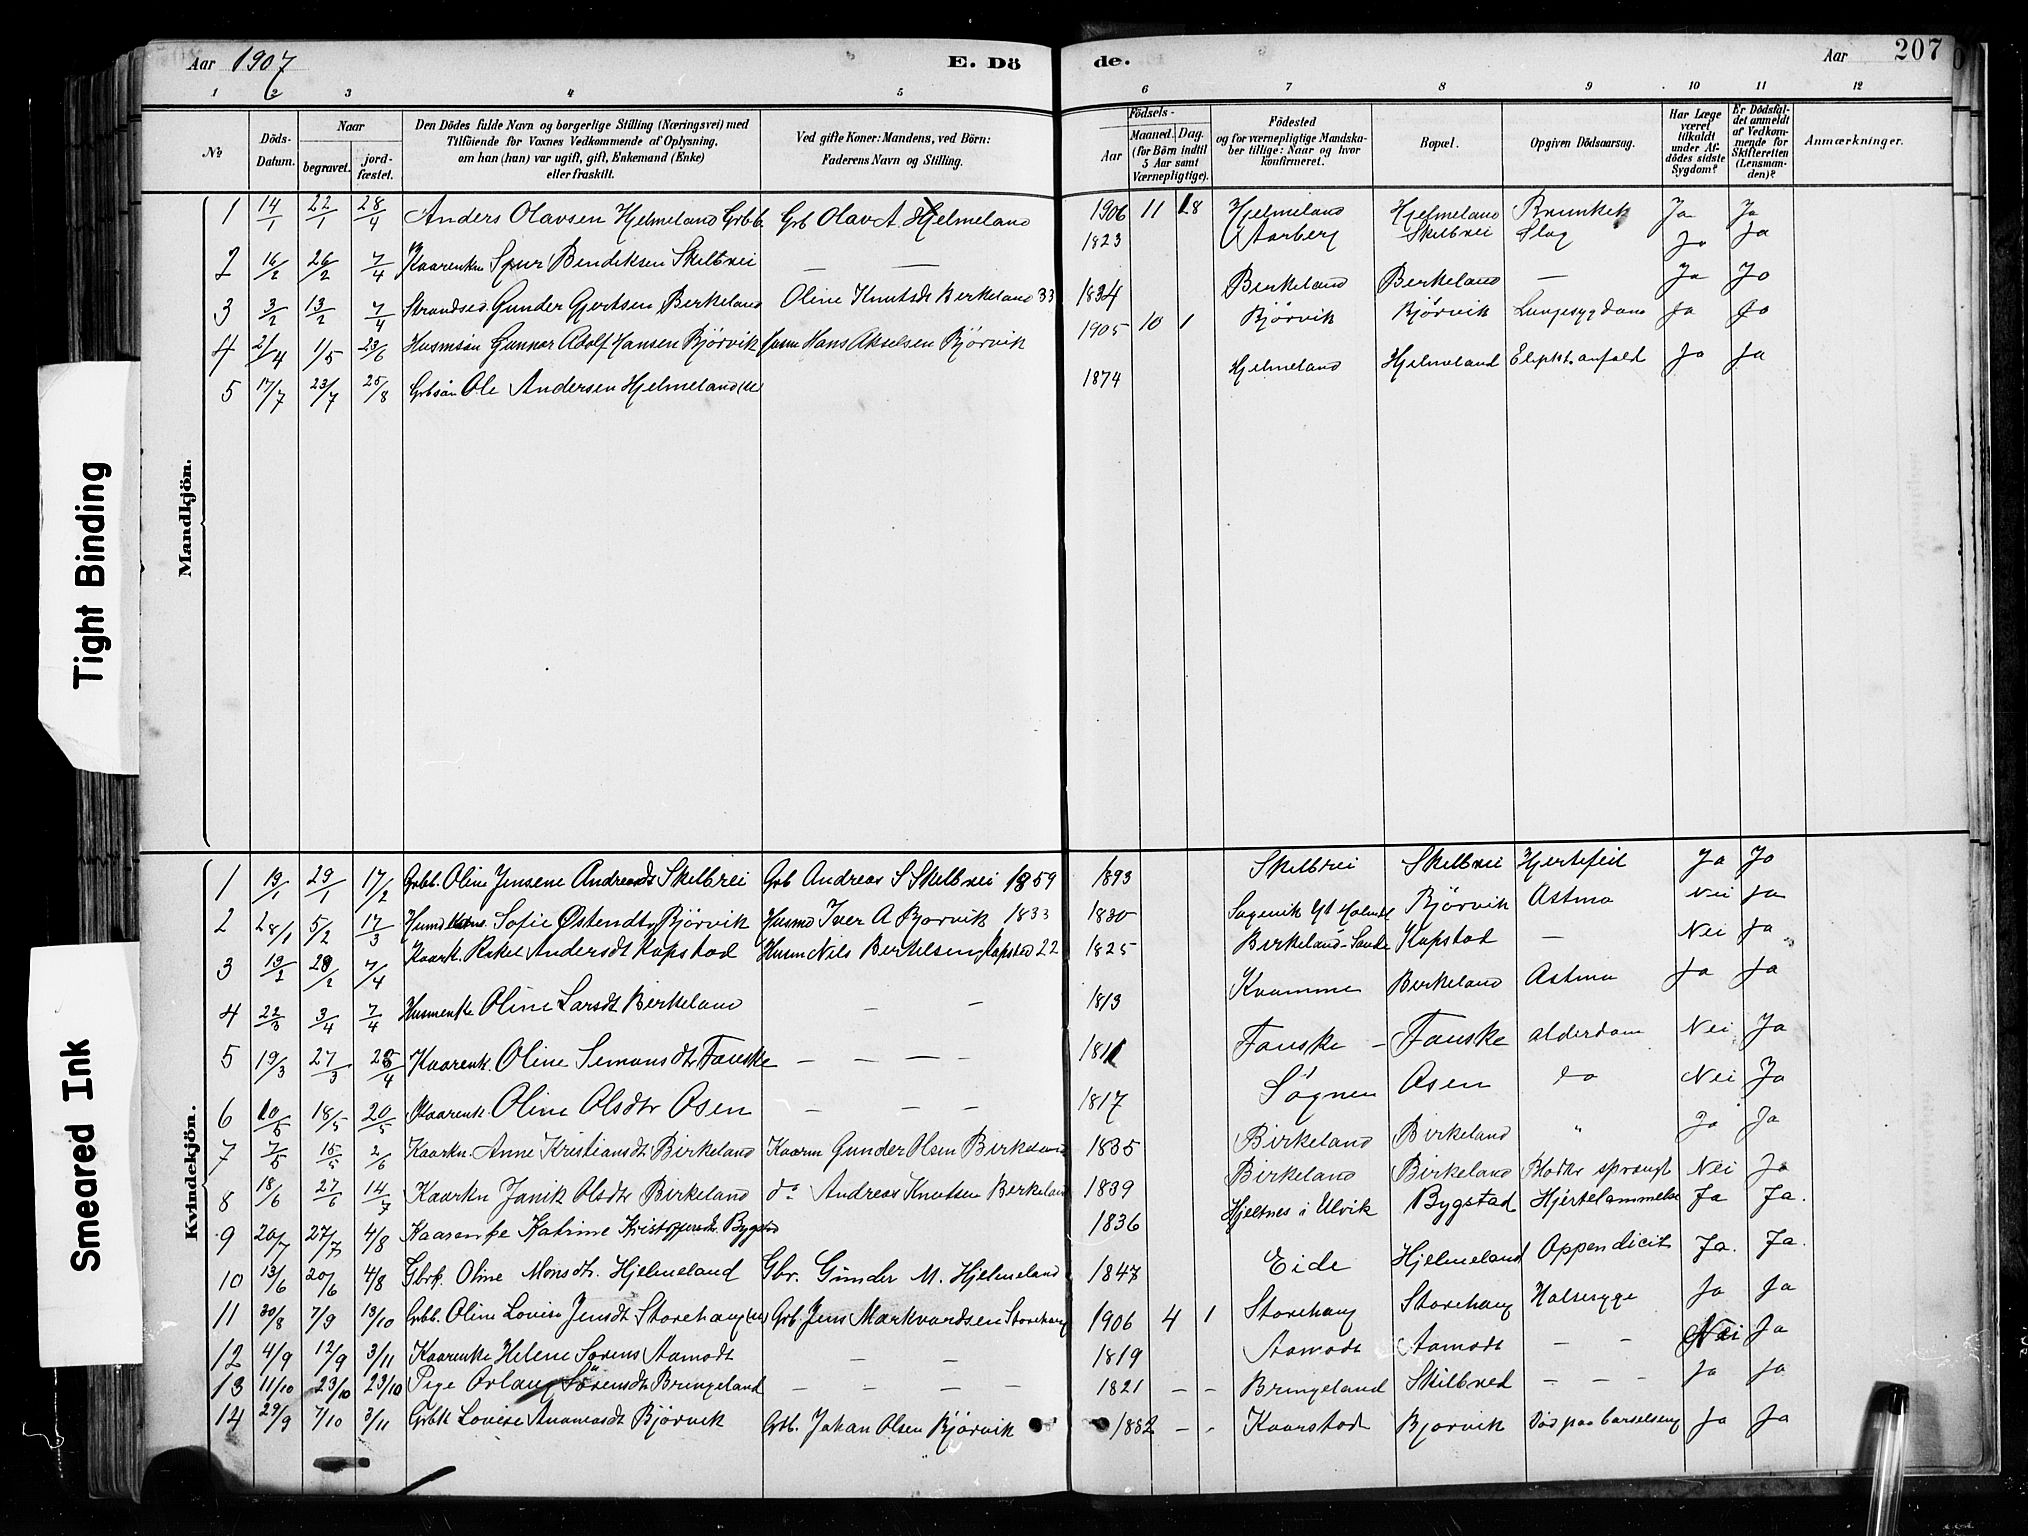 Aar 1907
E. Dö
de.
Aar
207
1 2 3 4 5 6 7 8 9 10 11 12
No.
Döds-Datum.
Naar
begravet.
jord-fæstet.
Den Dödes fulde Navn og borgerlige Stilling (Næringsvei) med
Tilföiende for Voxnes Vedkommende af Oplysning,
om han (hun) var ugift, gift, Enkemand (Enke)
eller fraskilt.
Ved gifte Koner: Mandens, ved Börn:
Faderens Navn og Stilling.
Födsels-
Aar
Maaned. Dag.
(for Börn indtil
5 Aar samt
Værnepligtige).
Födested
og for værnepligtige Mandska-
ber tillige: Naar og hvor
konfirmeret.
Bopæl.
Opgiven Dödsaarsag.
Har Læge
været
tilkaldt
under Af-
dödes sidste
Sygdom?
Er Dödsfal-
det anmeldt
af Vedkom-
mende for
Skifteretten
(Lensman-
den)?
Anmærkninger.
Mandkjön.
1 14/1 22/1 28/4 Anders Olavsen Hjelmeland Grbb. Grb Olav A. Hjelmeland 1906 11 18 Hjelmeland Hjelmeland Ja Ja
2 16/2 26/2 7/4 Kaarenkm Bendiksen Skilbrei — — 1823 Aarberg Skilbrei Slag Ja Ja
3 3/2 13/2 7/4 Gunder Gjertsen Birkeland Oline Knutsdt Birkeland 33 1834 Birkeland Birkeland — Ja Ja
4 21/4 1/5 23/6 Husmsön Gunnar Adolf Hansen Björvik Husm Hans Akselsen Björvik 1905 10 1 Björvik Björvik Lungesygdom Ja Ja
5 17/7 23/7 25/8 Grbsön Ole Andersen Hjelmeland (U) 1874 Hjelmeland Hjelmeland Elipkt. anfald Ja Ja
Kvindekjön.
1 19/1 29/1 17/2 Grbb. Oline Jensene Andreasdt Skilbrei Grb Andreas S Skilbrei 1859 1893 Skilbrei Skilbrei Hjertefeil Ja Ja
2 28/1 5/2 17/3 Sofie Østensdtr Björvik Husmd Iver A Bjørvik 1833 1830 Björvik Astma Nei Ja
3 19/2 28/2 7/4 Kaark. Rakel Andersdt Kapstad Husm Nils Bertelsen Kapstad 22 1825 Birkeland-Sande Kapstad — Nei Ja
4 22/3 3/4 7/4 Husmenke Oline Larsdt Birkeland — — 1813 Kvamme Birkeland Astma Ja Ja
5 19/3 27/3 28/4 Kaarenk. Oline Simonsdtr Fauske — — — — 1811 Fauske — Fauske Alderdom Nei Ja
6 10/5 18/5 20/5 Kaarenk Oline Olsdtr Osen — — — 1817 Søgnen Osen do Nei Ja
7 7/5 15/5 2/6 Kaarkn. Anne Kristiansdtr Birkeland Kaarm Gunder Olsen Birkeland 1835 Birkeland Birkeland " Ja Ja
8 18/6 27/6 14/7 Kaarkn Janik Olsdtr Birkeland do Andreas Knutsen Berkeland 1839 Birkeland Birkeland Blodkr sprængt Nei Ja
9 20/7 27/7 4/8 Kaarenke Katrine Kristoffersdtr. Bygstad 1836 Hjeltnes i Ulvik Bygstad Hjertelammelse Ja Ja.
10 13/6 20/6 4/8 Gbrk. Oline Monsdtr. Hjelmeland Gbr. Gunder M. Hjelmeland 1847 Eide Hjelmeland Appendicit Ja. Ja.
11 30/8 7/9 13/10 Grbb. Oline Lovise Jensdt Storehaug (U) Grb. Jens Markvardsen Storehaug 1906 4 1 Storehaug Storehaug Halsesyge Ja Ja
12 4/9 12/9 3/11 Kaarenke Helene Sörens Aamodt — — 1819 Aamodt Aamodt — — Nei Ja
13 11/10 23/10 23/10 Pige Orlaug Sörensdt Bringeland — — — 1821 — — Bringeland Skilbred — — — Ja Ja
14 29/9 7/10 3/11 Grbk Lovise Björvik Grb. Johan Olsen Björvik 1882 — — Kaarstad Bjorvik Död paa barselseng Ja Ja
Tight Binding
Smeared Ink